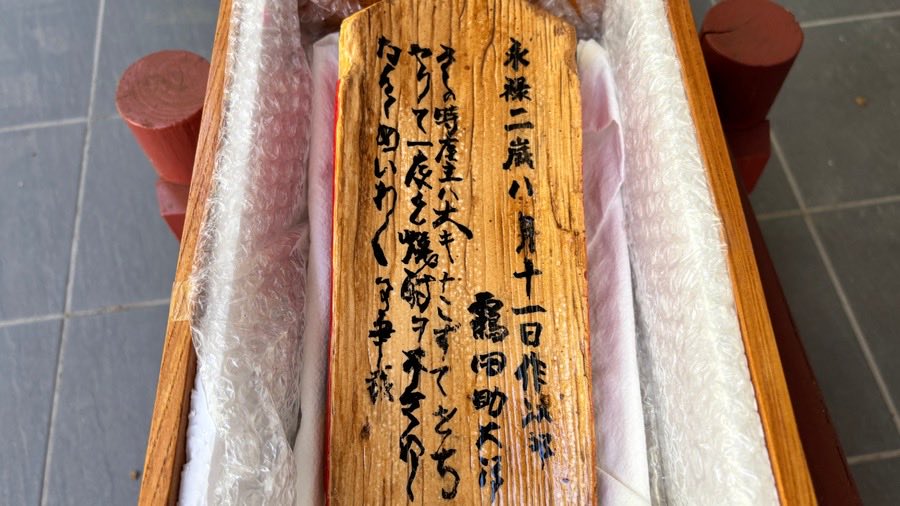 永禄二歳八月十一日作次郎
靏田助太郎
其の時座主ハ大キナこずてをち
やりて一度も焼酎ヲ不被下候
めいわくな事哉